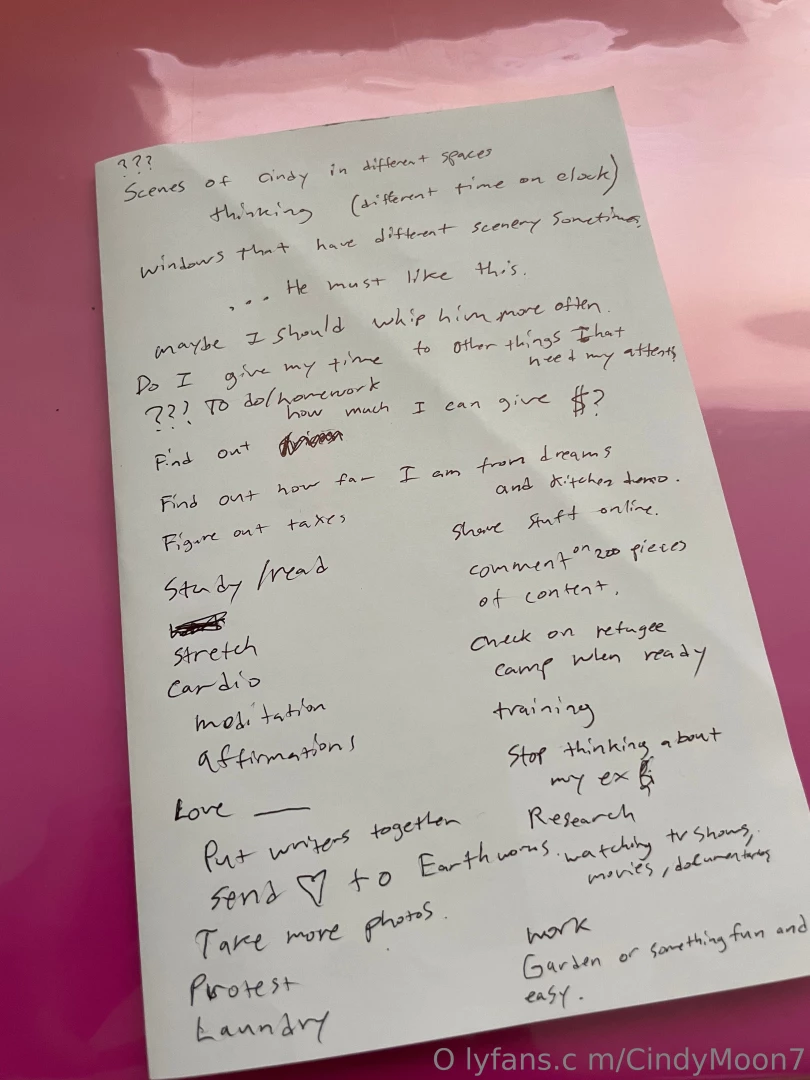 ???
Scenes of Cindy in different spaces
thinking (different time on clock)
windows that have different scenery sometimes.
... He must like this.
maybe I should whip him more often.
Do I give my time to other things that
need my attents
??? To do/homework
how much I can give $?
Find out
Find out how far I am from dreams
and kitchen demo.
Figure out taxes
Study/read
Stretch
Cardio
moditation
affirmations
Love —
Put writers together
Send ♡ to Earthworms.
Take more photos.
Protest
Laundry
Share stuff online.
comment on 200 pieces
of content.
Check on refugee
camp when ready
training
Stop thinking about
my ex
Research
watching tv shows,
movies, documentaries
work
Garden or something fun and
easy.
O lyfans.c m/CindyMoon7